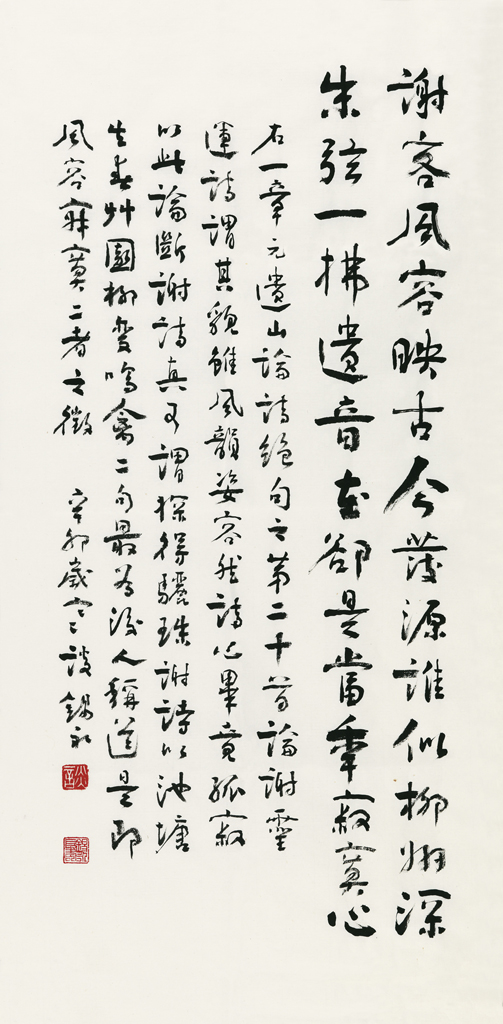 謝客風容映古今發源誰似柳州深
朱弦一拂遺音在卻是當年寂寞心
右一章元遺山論詩絕句之第二十首論謝靈
運詩謂其貌雖風韻姿容然詩心畢竟孤寂
以此論斷謝詩真可謂探得驪珠謝詩以池塘
生春艸園柳變鳴禽二句最為後人稱道是即
風容寂寞二者之徵 辛卯歲談錫永